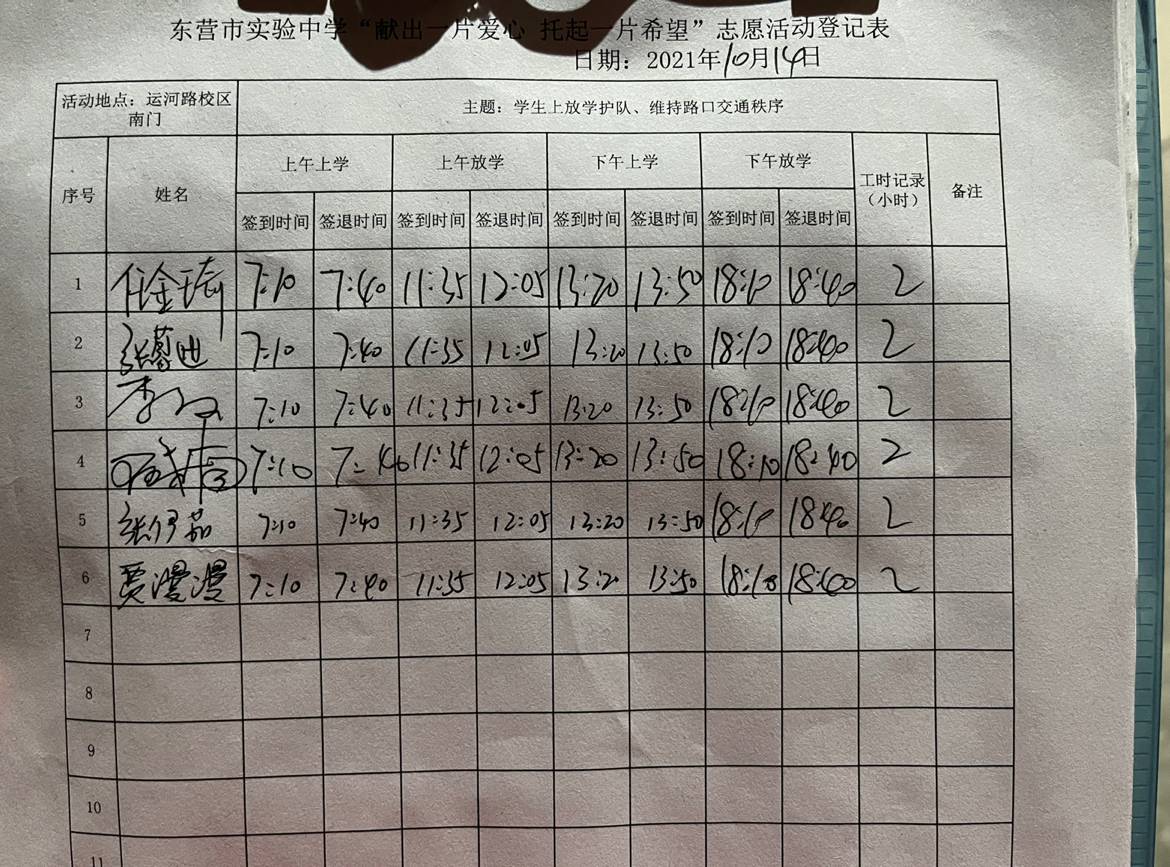 东营市实验中学“献出一片爱心 托起一片希望”志愿活动登记表
日期：2021年10月14日
活动地点：运河路校区南门 主题：学生上放学护队、维持路口交通秩序
序号 姓名 上午上学 上午放学 下午上学 下午放学 工时记录（小时） 备注
签到时间 签退时间 签到时间 签退时间 签到时间 签退时间 签到时间 签退时间
1 7:10 7:40 11:35 12:05 13:20 13:50 18:10 18:40 2
2 7:10 7:40 11:35 12:05 13:20 13:50 18:10 18:40 2
3 7:10 7:40 11:35 12:05 13:20 13:50 18:10 18:40 2
4 7:10 7:40 11:35 12:05 13:20 13:50 18:10 18:40 2
5 7:10 7:40 11:35 12:05 13:20 13:50 18:10 18:40 2
6 贾漫漫 7:10 7:40 11:35 12:05 13:20 13:50 18:10 18:40 2
7
8
9
10
11